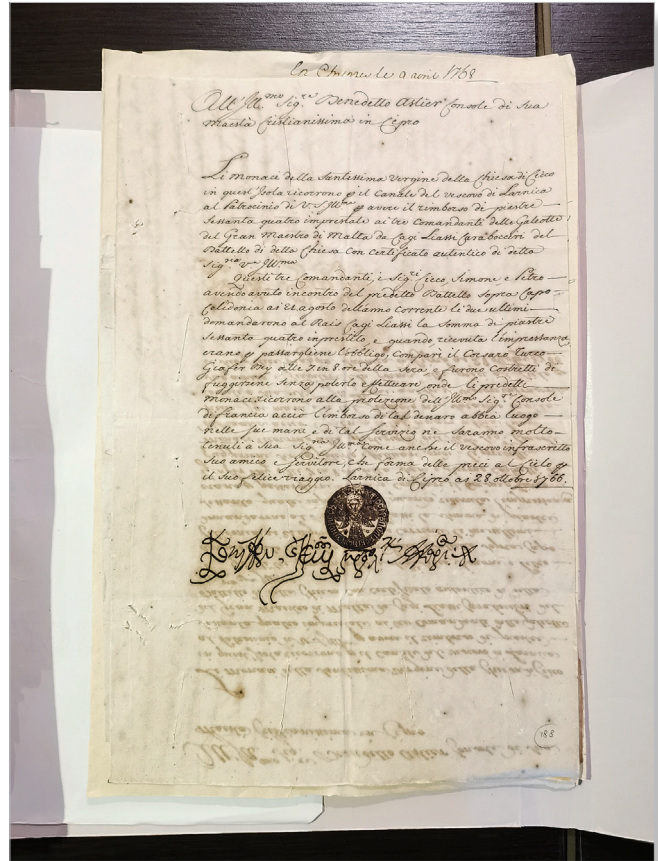 le 9 avril 1768
All' Ill.mo Sig.re Benedetto Astier Console di Sua
Maestà Cristianissima in Cipro
Li Monaci della Santissima Vergine della Chiesa di Cicco
in quest'Isola ricorrono p il canale del vescovo di Larnica
al Patrocinio di V.S. Ill.ma p avere il rimborso di piastre
Sessanta quatro imprestate ai tre Comandanti delle Galeotte
del Gran Maestro di Malta da Cagi Liassi Carabocchiri del
Battello di detta Chiesa con certificato autentico di detta
Sig.ria V.a Ill.ma
Questi tre Comandanti, i Sig.ri Cicco, Simone e Petro
avendo avuto incontro del predetto Battello Sopra Capo
Celidonia as 21 agosto dell'anno corrente le due ultimi
domandarono al Rais Cagi Liassi la Somma di piastre
Sessanta quatro imprestito, e quando ricevuta l'impressanza
erano p passargliene l'obbligo, comparì il Corsaro turco
Giafer Bey alle 7 en 8 ore della Sera e furono Costretti di
fuggirsene Senza poterlo effettuare onde li predetti
monaci ricorrono alla protezione dell' Ill.mo Sig.r Console
di francia acciò l'imborso di tal denaro abbia luogo
nelle sue mani e di tal Servizio ne Saranno molto
tenuti a Sua Sig.ria Ill.ma come anche il vescovo infrascritto
Suo amico e Servitore, che forma delle preci al Cielo p
il Suo felice viaggio. Larnica di Cipro as 28 ottobre 1766.
188